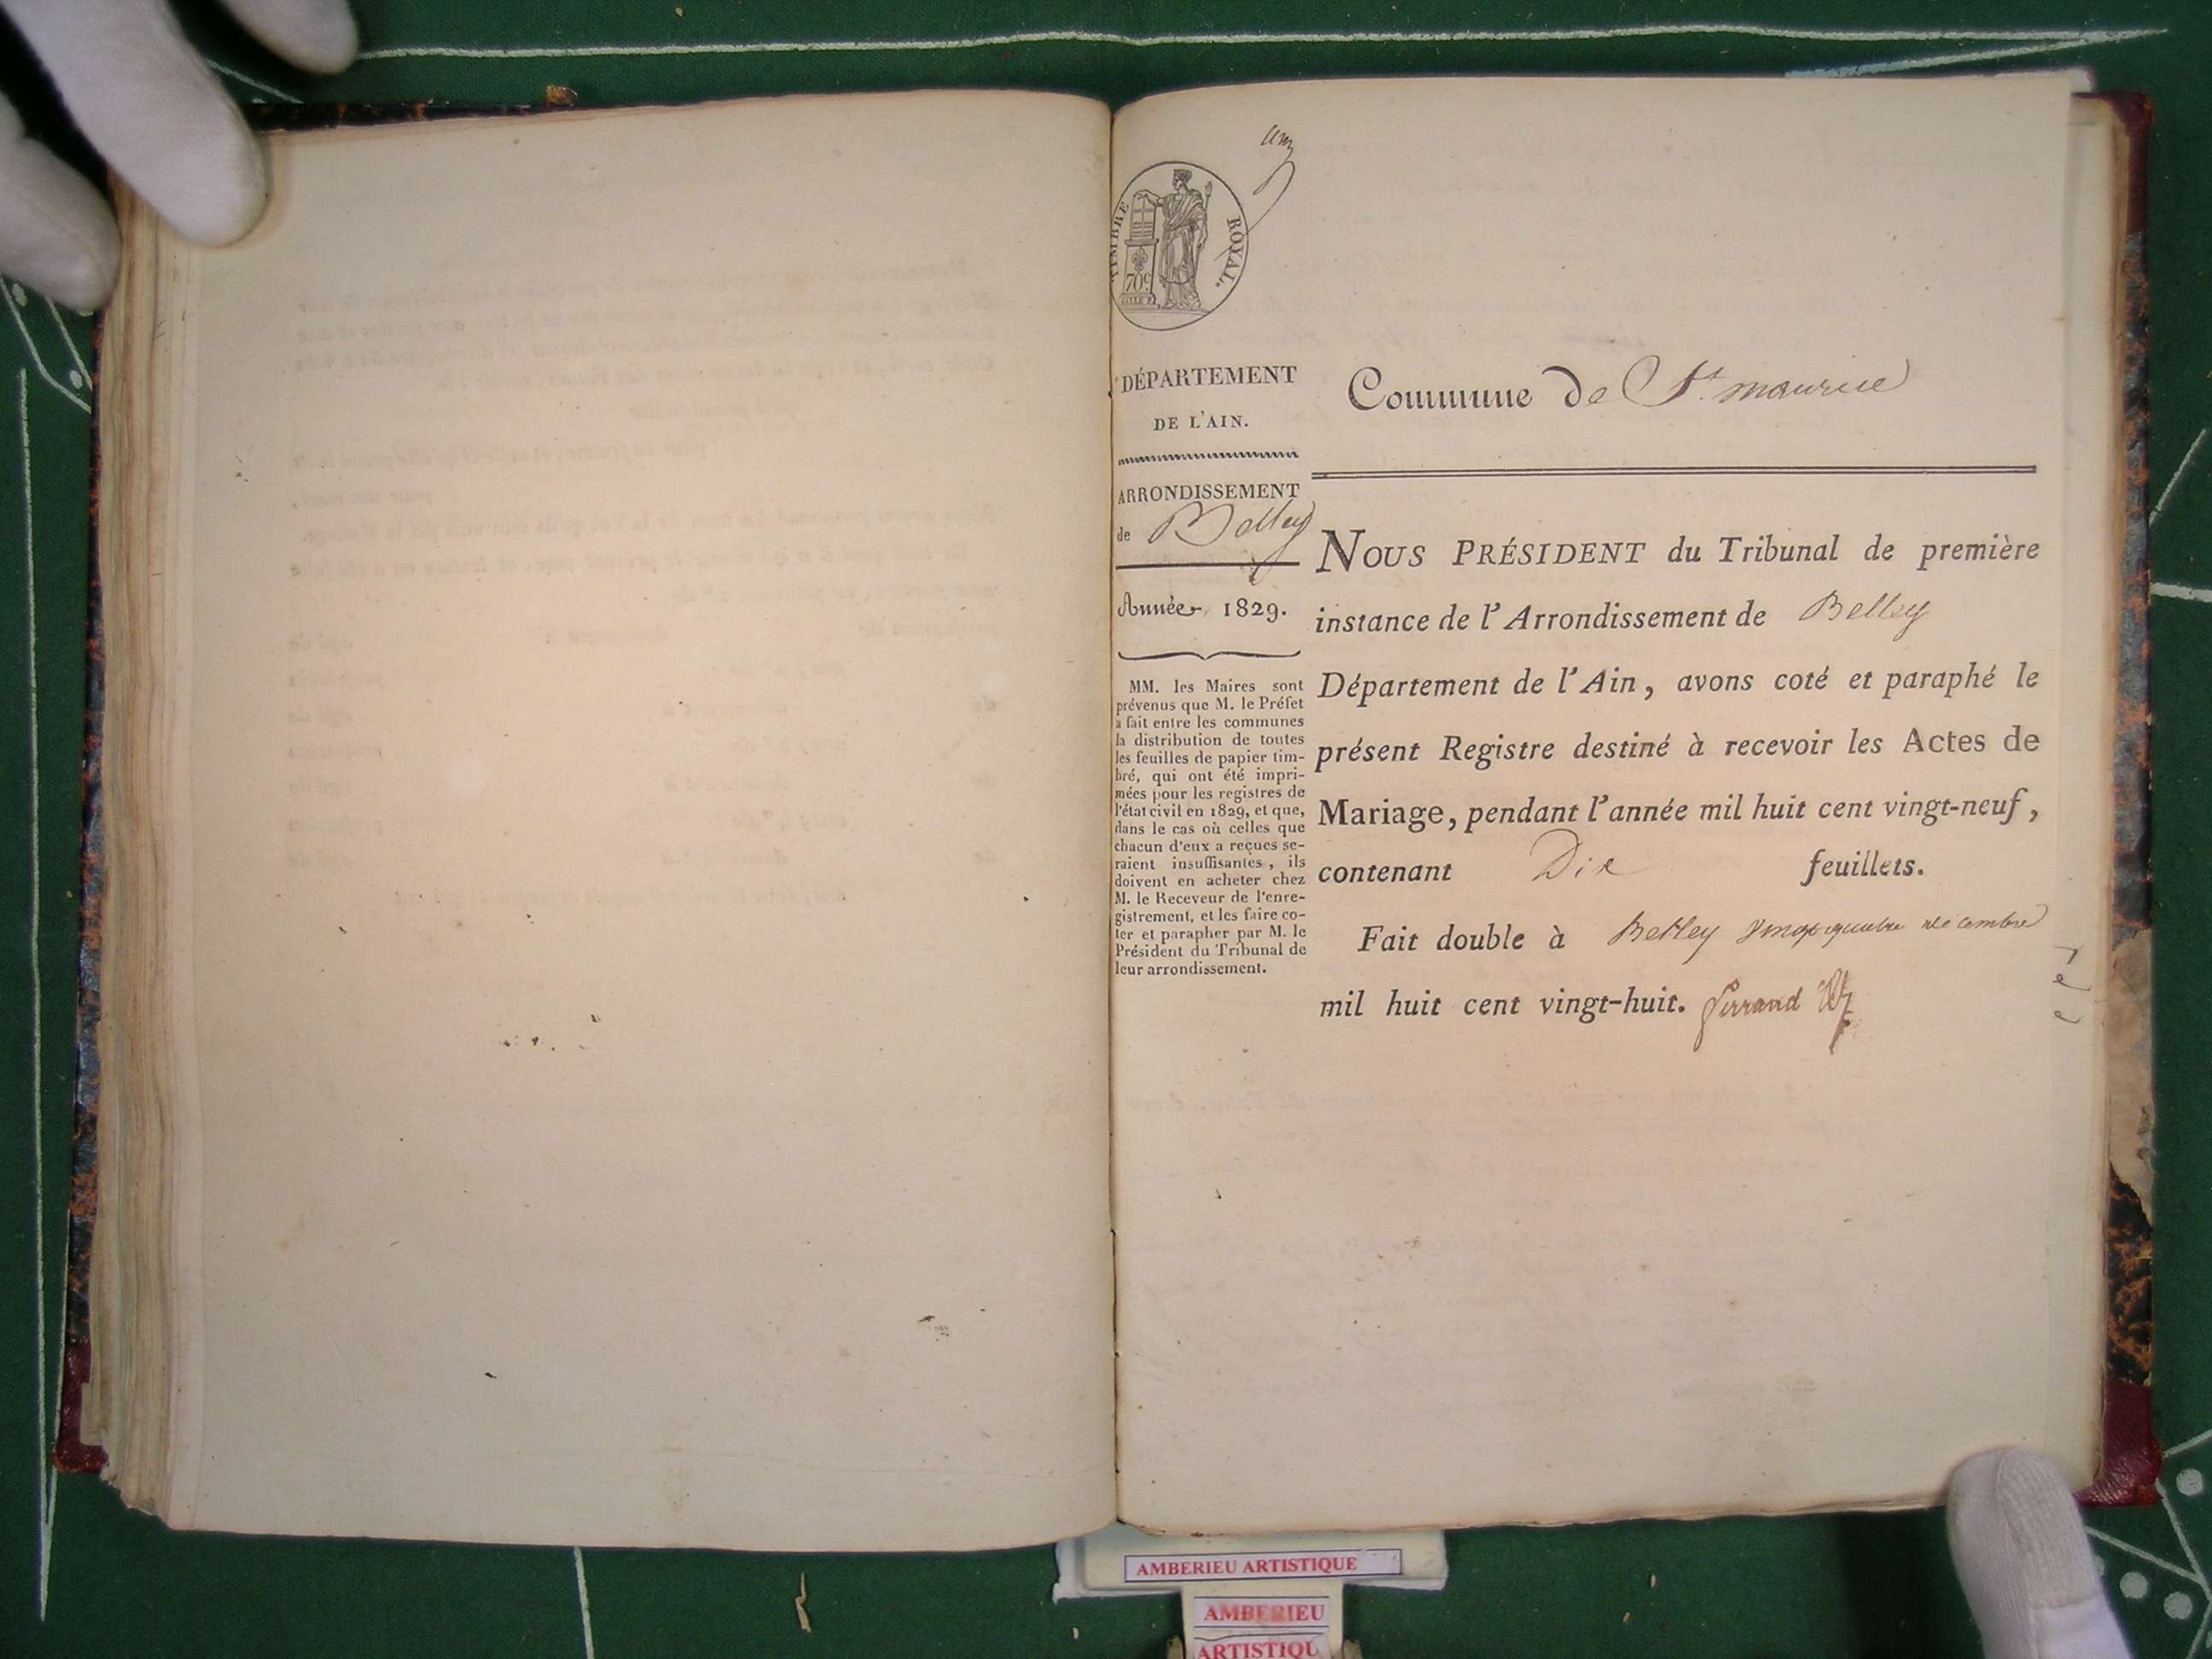 TIMBRE ROYAL.
70c
DÉPARTEMENT
DE L'AIN.
ARRONDISSEMENT
de Belley
Année 1829.
MM. les Maires sont
prévenus que M. le Préfet
a fait entre les communes
la distribution de toutes
les feuilles de papier tim-
bré, qui ont été impri-
mées pour les registres de
l'état civil en 1829, et que,
dans le cas où celles que
chacun d'eux a reçues se-
raient insuffisantes, ils
doivent en acheter chez
M. le Receveur de l'enre-
gistrement, et les faire co-
ter et parapher par M. le
Président du Tribunal de
leur arrondissement.
Commune de St. maurice
NOUS PRÉSIDENT du Tribunal de première
instance de l'Arrondissement de Belley
Département de l'Ain, avons coté et paraphé le
présent Registre destiné à recevoir les Actes de
Mariage, pendant l'année mil huit cent vingt-neuf,
contenant Dix feuillets.
Fait double à Belley vingt quatre decembre
mil huit cent vingt-huit.
AMBERIEU ARTISTIQUE
AMBERIEU
ARTISTIQU